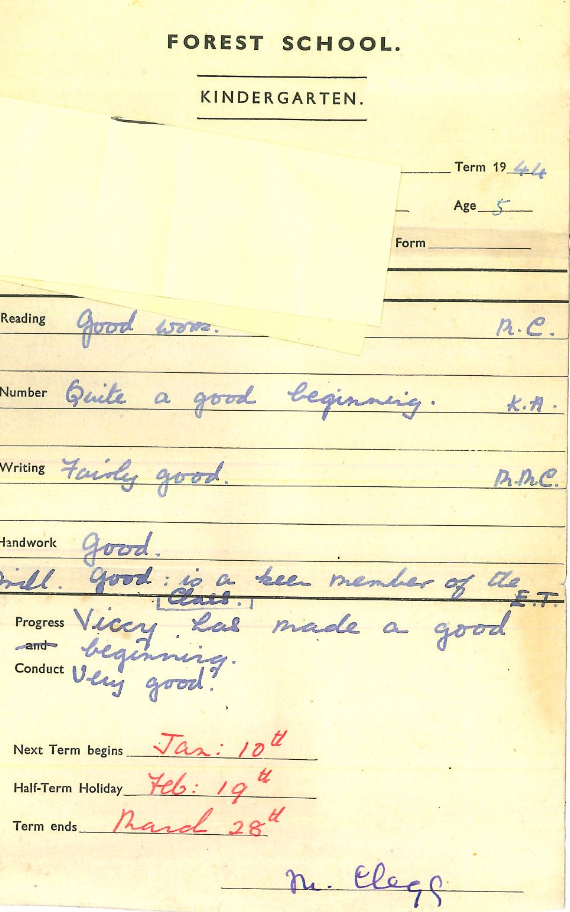 FOREST SCHOOL.
KINDERGARTEN.
Term 19 44
Age 5
Form
Reading Good work. R.C.
Number Quite a good beginning. K.A.
Writing Fairly good. R.M.C.
Handwork Good.
Drill. Good: is a keen member of the
Class. E.T.
Progress Viccy has made a good
and beginning.
Conduct Very good.
Next Term begins Jan: 10th
Half-Term Holiday Feb: 19th
Term ends March 28th
M. Clegg